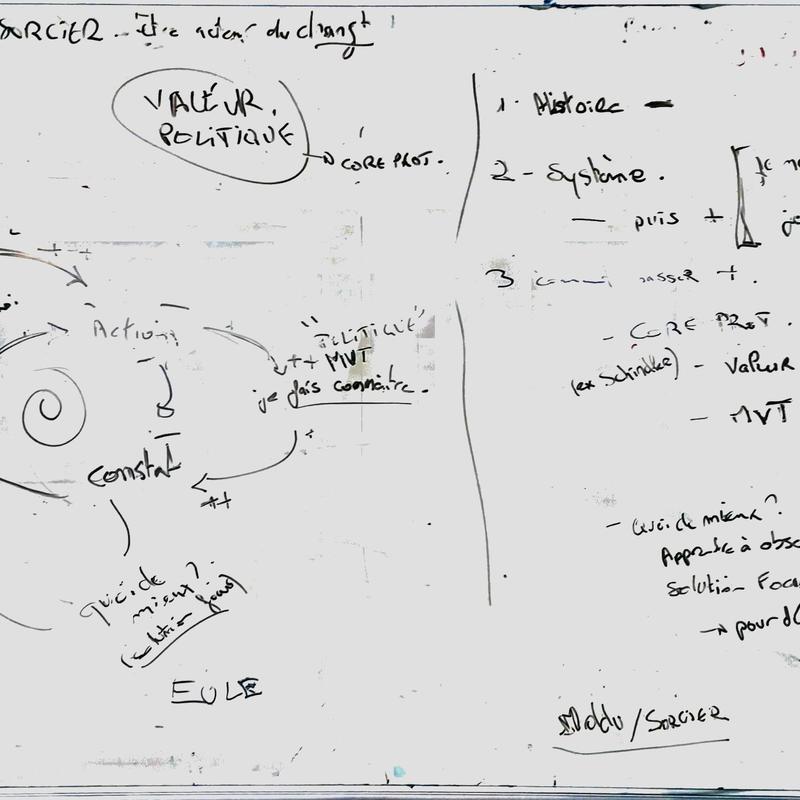 SORCIER - Être acteur du changt
VALEUR.
POLITIQUE
→ CORE PROT.
++
Action
"POLITIQUE"
++ MVT
je fais connaître.
constat
++
quoi de
mieux?
(solution focus)
EULE
1. Histoire -
2 - Système.
- puis +
3 comment passer +.
- CORE PROT.
(ex Schindler) - Valeur
- MVT
- Quoi de mieux?
Apprendre à obse
Solution Focu
→ pour d(
/ SORCIER